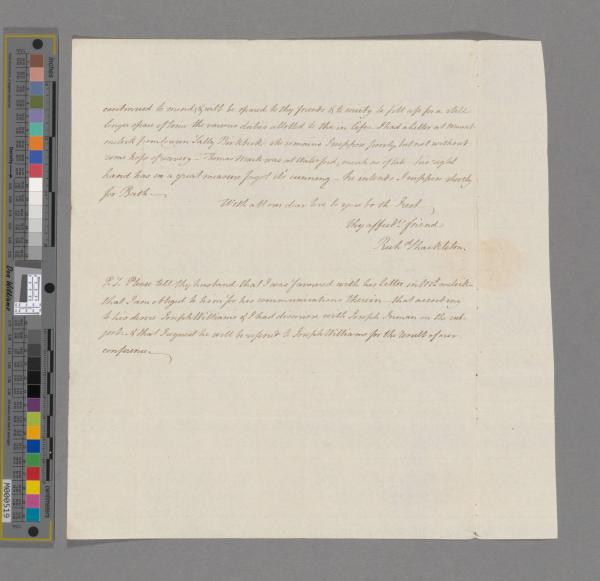 continued to mend, & will be spared to thy friends & to society to fill up for a still
longer space of time the various duties allotted to thee in life. I had a letter at
from Sally Birkbeck she remains I suppose poorly but not without
some hope of recovery — Thomas was at Waterford, much as of late — his right
hand has in a great measure forgot its cunning — he intends I suppose shortly
for Bath —
With all our dear love to you both I rest
thy affect. friend
Rich.d Shackleton.
P.S. Please tell thy husband that I was favoured with his letter in
that I am obliged to him for his communications therein — that according
to his desire Joseph Williams & I had discourse with Joseph Inman on the sub-
ject — & that I request he will be referred to Joseph Williams for the result of our
conference —
inches
Don Williams
centimeters
M000519